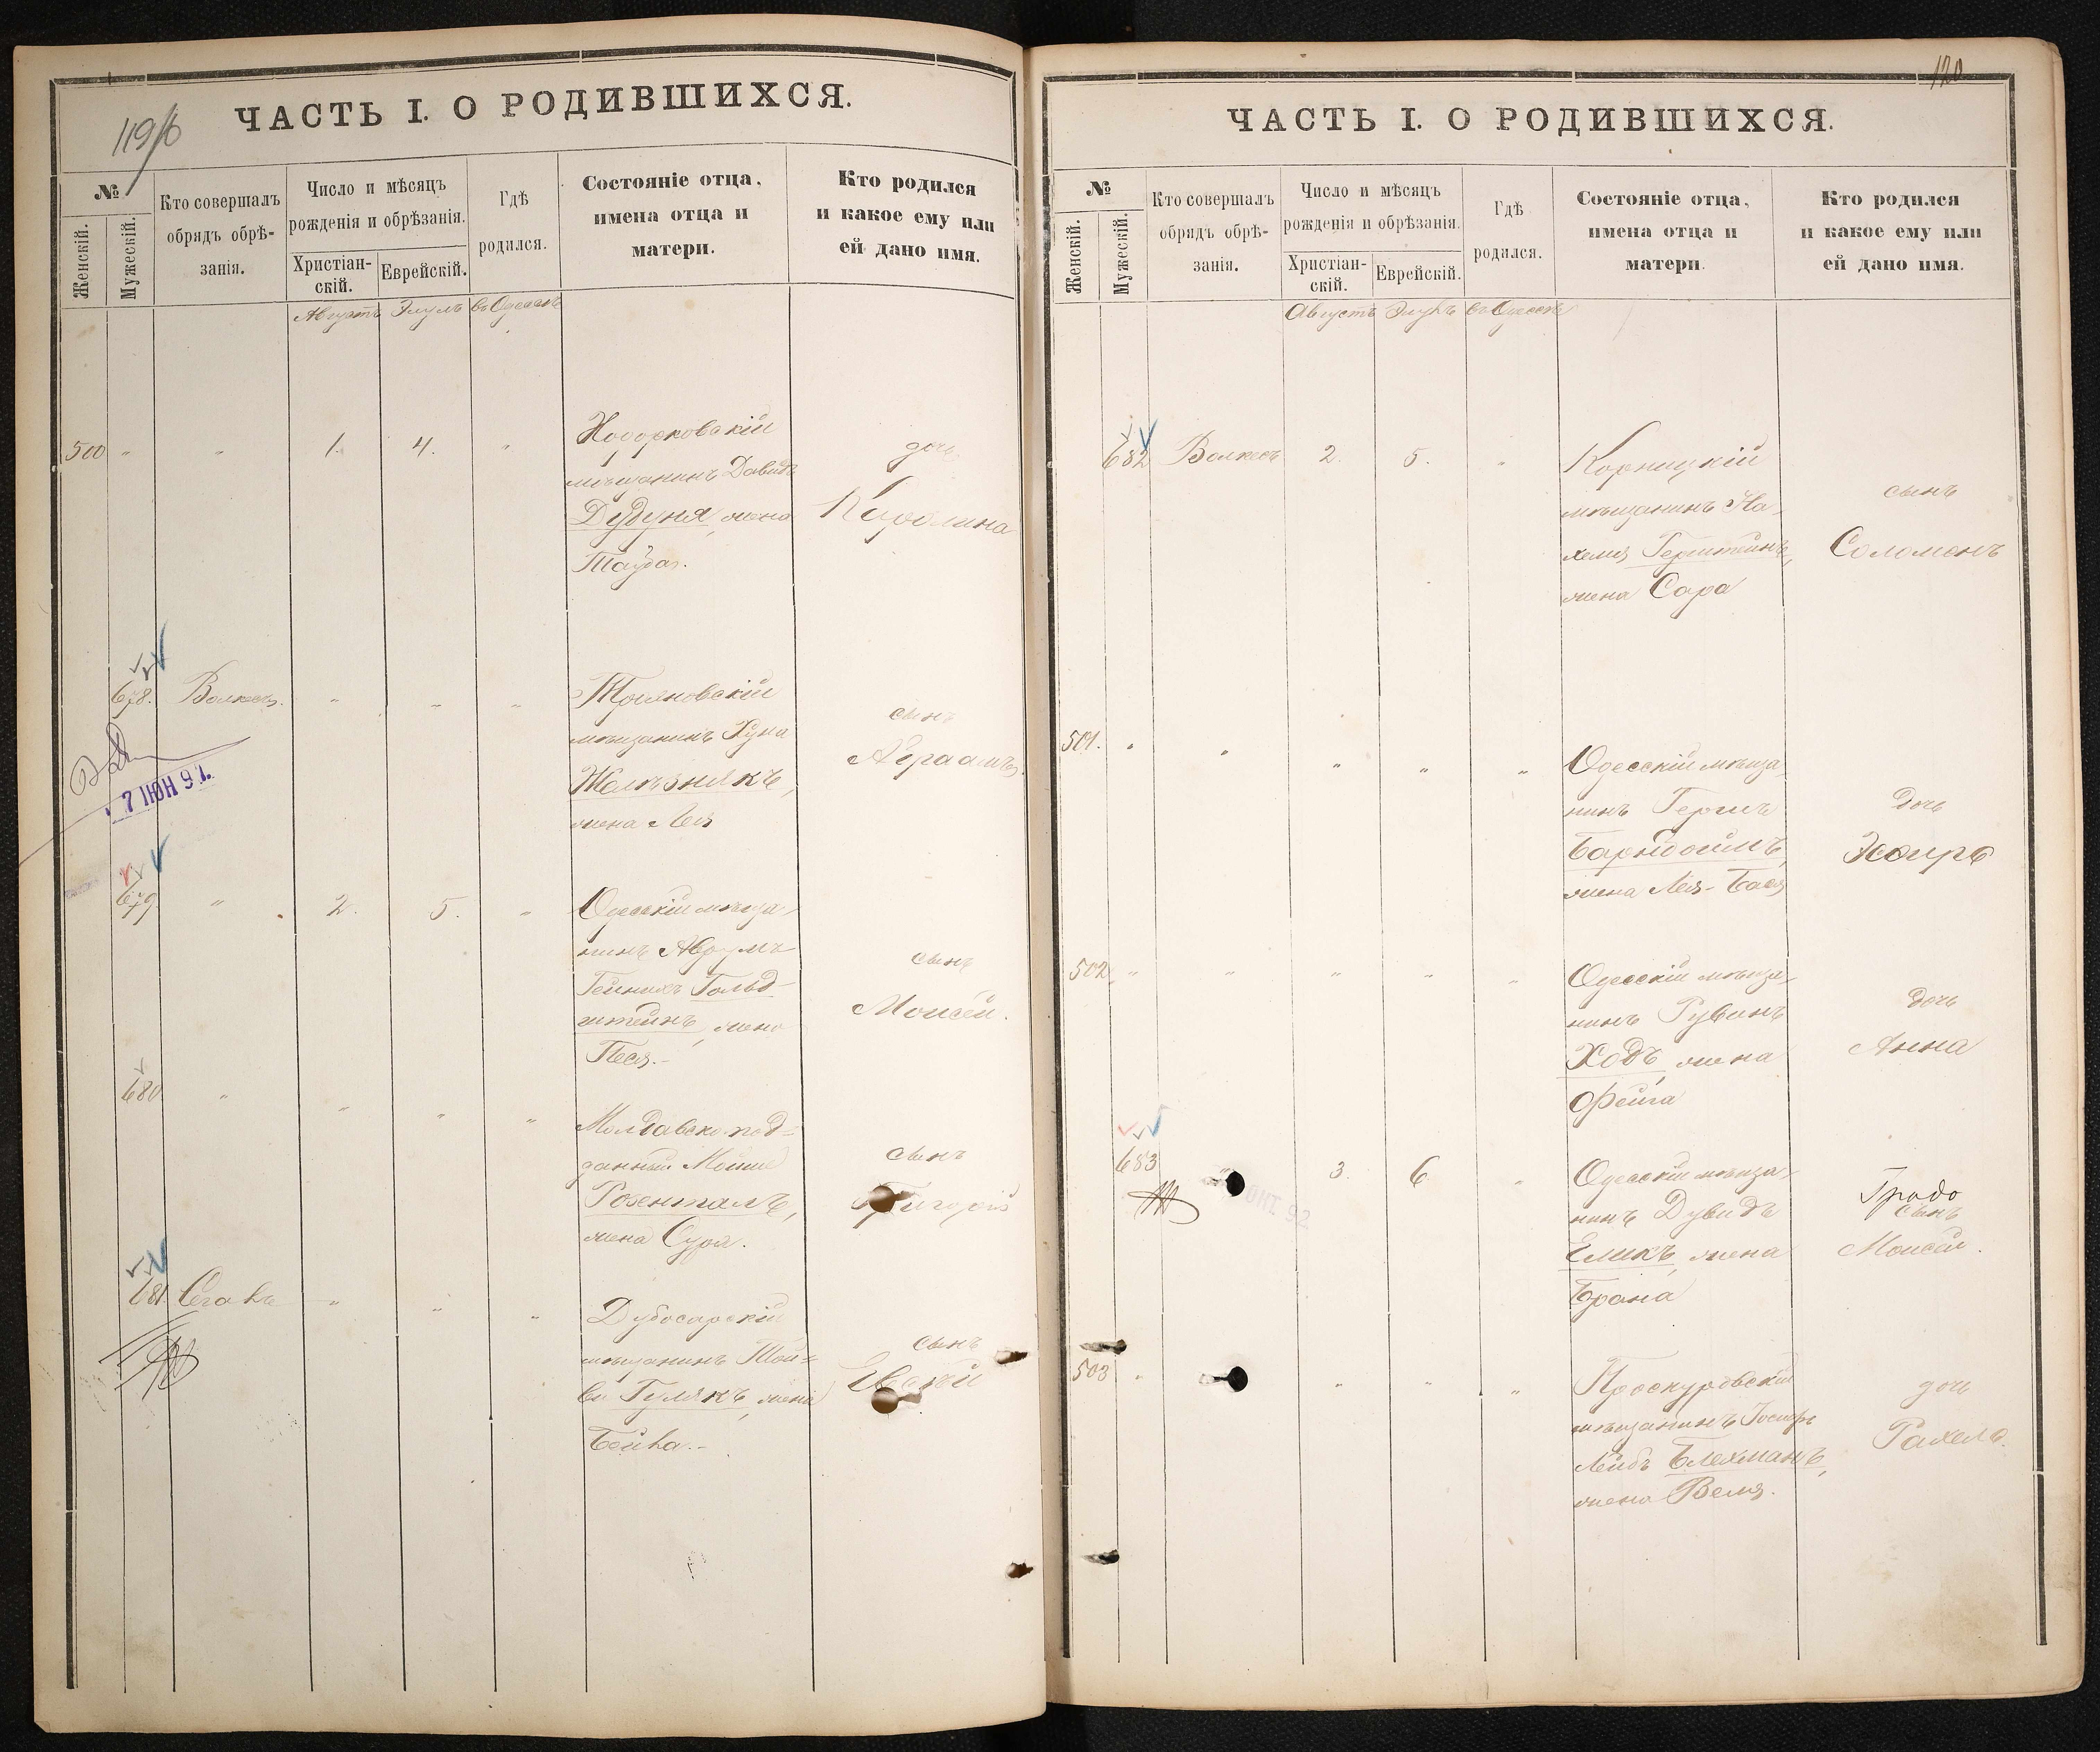 119/б
ЧАСТЬ I. О РОДИВШИХСЯ.
№
Женскій.
Мужескій.
Кто совершалъ
обрядъ обрѣ-
занія.
Число и мѣсяцъ
рожденія и обрѣзанія.
Христіан-
скій.
Еврейскій.
Гдѣ
родился.
Состояніе отца,
имена отца и
матери.
Кто родился
и какое ему или
ей дано имя.
Августъ Элулъ въ Одессѣ
500 " " 1. 4. "
Ходорковскій
мѣщанинъ Давидъ
Дудуня, жена
Тауба.
дочь
Каролина
678. Волкесъ. " " "
Трояновскій
мѣщанинъ Хуна
Желѣзнякъ,
жена Лея
сынъ
Абраамъ.
7 ІЮН 97.
679 " 2. 5. "
Одесскій мѣща-
нинъ Аврумъ
Гейнихъ Гольд-
штейнъ, жена
Песя.-
сынъ
Моисей.
680 " " " "
Молдавско под-
данный Мойше
Розенталъ,
жена Сура.
сынъ
Григорій
681. Сгалъ " " "
Дубосарскій
мѣщанинъ Той-
ви Гулякъ, жена
Бейла.-
сынъ
Евсѣй
120
ЧАСТЬ I. О РОДИВШИХСЯ.
№
Женскій.
Мужескій.
Кто совершалъ
обрядъ обрѣ-
занія.
Число и мѣсяцъ
рожденія и обрѣзанія.
Христіан-
скій.
Еврейскій.
Гдѣ
родился.
Состояніе отца,
имена отца и
матери.
Кто родился
и какое ему или
ей дано имя.
Августъ Элулъ въ Одессѣ
682 Волкесъ 2. 5. "
Корницкій
мѣщанинъ На-
хемя Герштейнъ,
жена Сара
сынъ
Соломонъ
501. " " " " "
Одесскій мѣща-
нинъ Гершъ
Барнбоймъ,
жена Лея-Бася
дочь
Эсѳирь
502 " " " " "
Одесскій мѣща-
нинъ Рувинъ
Ходъ, жена
Фейга
дочь
Анна
683 " 3. 6. "
ОКТ. 92
Одесскій мѣща-
нинъ Дувидъ
Еликъ, жена
Брана
сынъ
Моисей.
503 " " " "
Проскуровскій
мѣщанинъ Іосифъ
Лейбъ Блехманъ,
жена Веля.
дочь
Рахель.